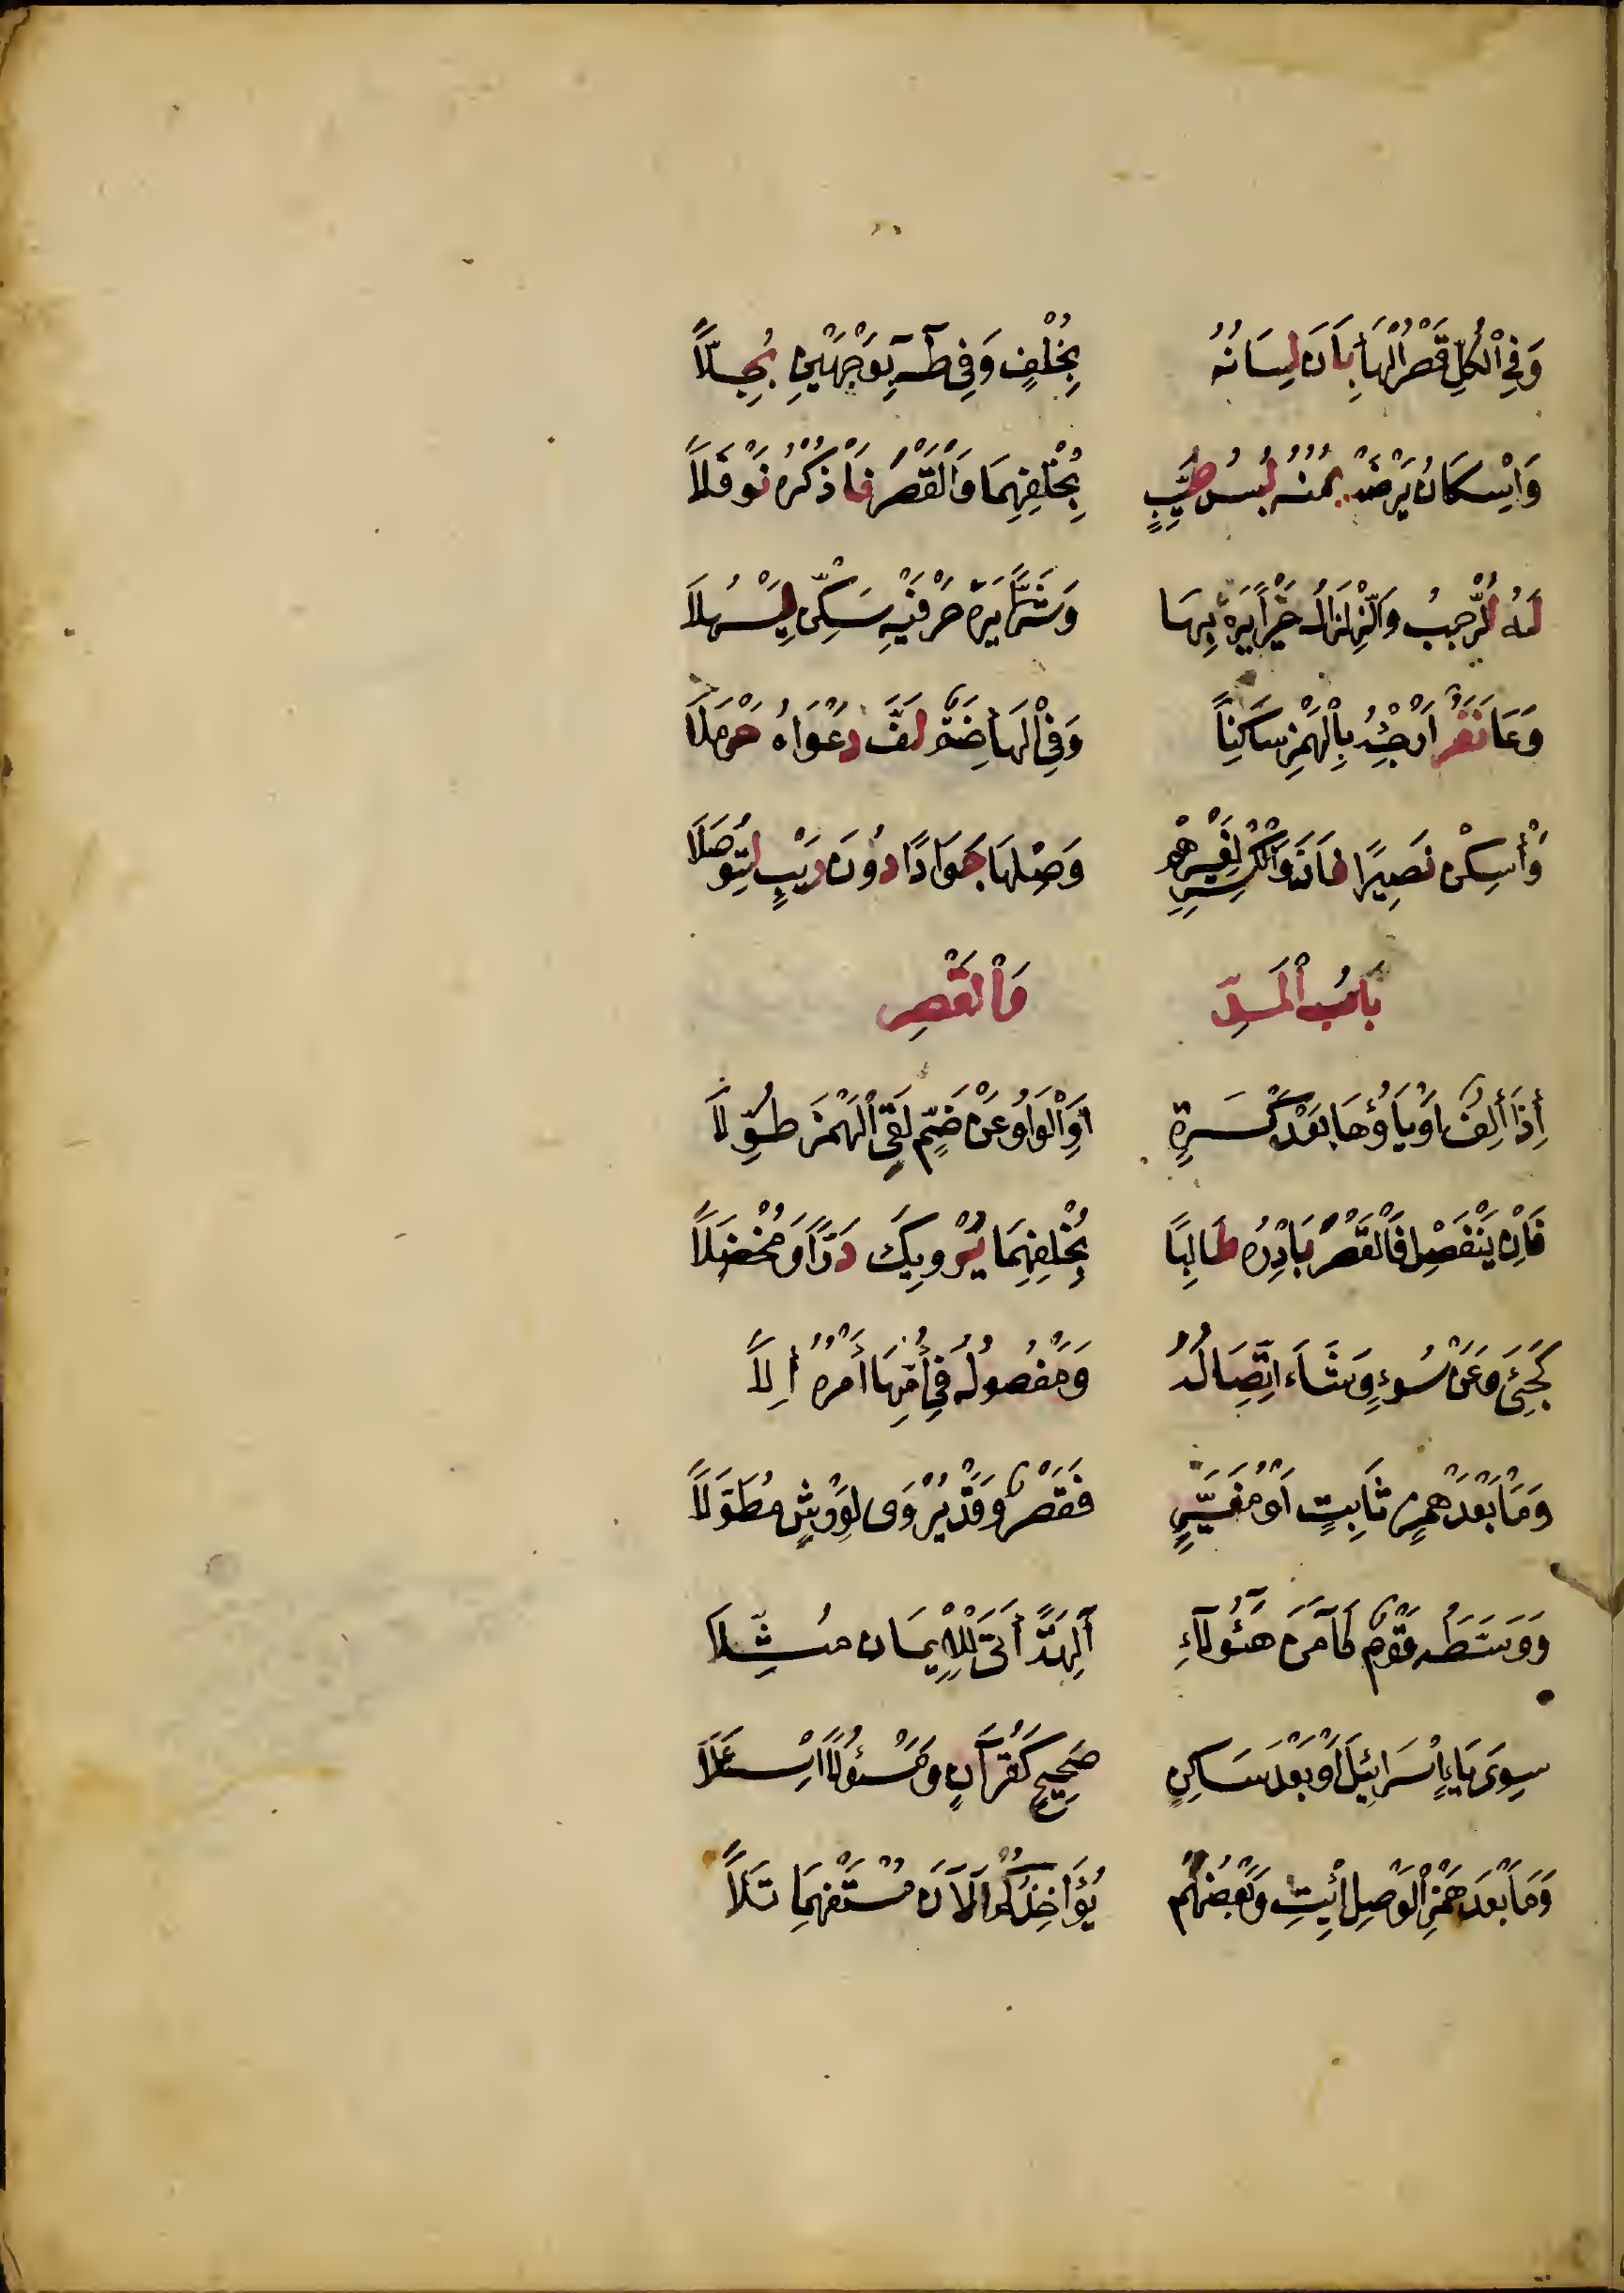 وَفِي ٱلْكُلِّ قَصْرُ ٱلْهَاءِ بَانَ لِسَانُهُ بِخُلْفٍ وَفِي طَهَ بِوَجْهَيْنِ بُجِّلَا
وَإِسْكَانُ يَرْضَهْ يُمْنُهُ لُبْسُ طَيِّبٍ بِخُلْفِهِمَا وَٱلْقَصْرُ فَاذْكُرْهُ نَوْفَلَا
لَهُ ٱلرُّحْبُ وَٱلزِّلْزَالُ خَيْرًا يَرَهْ بِهَا وَشَرًّا يَرَهْ حَرْفَيْهِ سَكِّنْ لِيَسْهُلَا
وَعَا نَفَرٌ أَرْجِئْهُ بِٱلْهَمْزِ سَاكِنًا وَفِي ٱلْهَاءِ ضَمٌّ لَفَّ دَعْوَاهُ حَرْمَلَا
وَأَسْكِنْ نَصِيرًا فَازَ وَٱكْسِرْ لِغَيْرِهِمْ وَصِلْهَا جَوَادًا دُونَ رَيْبٍ لِتُوصَلَا
بَابُ ٱلْمَدِّ وَٱلْقَصْرِ
إِذَا أَلِفٌ أَوْ يَاؤُهَا بَعْدَ كَسْرَةٍ أَوِ ٱلْوَاوُ عَنْ ضَمٍّ لَقِي ٱلْهَمْزَ طُوِّلَا
فَإِنْ يَنْفَصِلْ فَٱلْقَصْرُ بَادِرْهُ طَالِبًا بِخُلْفِهِمَا يُرْوِيكَ دَرًّا وَمُخْضَلَا
كَجِيئَ وَعَنْ سُوءٍ وَشَاءَ ٱتِّصَالُهُ وَمَفْصُولُهُ فِي أُمِّهَا أَمْرُهُ إِلَا
وَمَا بَعْدَ هَمْزٍ ثَابِتٍ أَوْ مُغَيَّرٍ فَقَصْرٌ وَقَدْ يُرْوَى لِوَرْشٍ مُطَوَّلَا
وَوَسَّطَهُ قَوْمٌ كَآمَنَ هَؤُلَآءِ آلِهَةً أَتَى لِلْإِيمَانِ مُثِّلَا
سِوَى يَاءِ إِسْرَائِيلَ أَوْ بَعْدَ سَاكِنٍ صَحِيحٍ كَقُرْآنٍ وَمَسْئُولًا ٱسْئَلَا
وَمَا بَعْدَ هَمْزِ ٱلْوَصْلِ ٱئِيتِ وَبَعْضُهُمْ يُؤَاخِذُكُمْ آلْآنَ مُسْتَفْهِمًا تَلَا